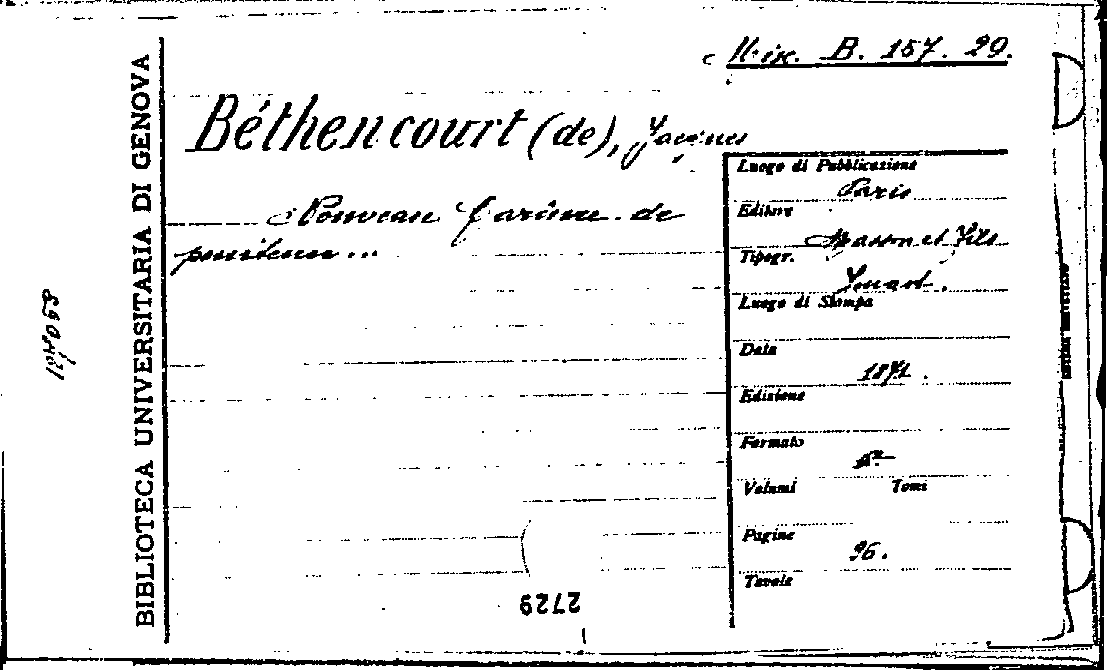 B. 157. 29.
Béthencourt (de), Jacques
Nouveau Carême de
penitence...
BIBLIOTECA UNIVERSITARIA DI GENOVA
Luogo di Pubblicazione
Paris
Editore
Masson et Fils
Tipogr.
Luogo di Stampa
Data
1871.
Edizione
Formato
Volumi Tomi
Pagine
96.
Tavole
2729